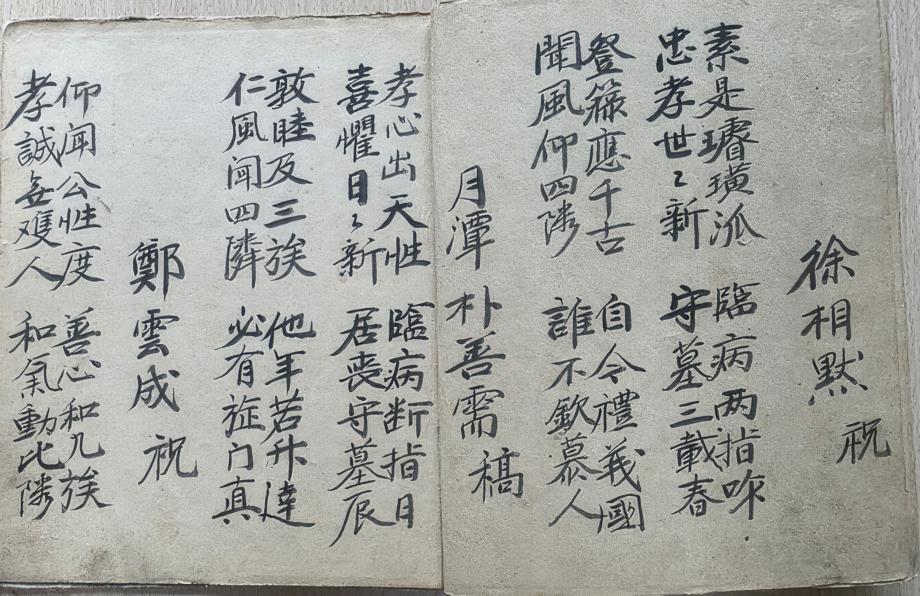 徐相默 祝
素是璿璜派 臨病兩指咋
忠孝世〻新 守墓三載春
登籙應千古 自今禮義國
聞風仰四隣 誰不欽慕人
月潭 朴善需 稿
孝心出天性 臨病断指日
喜懼日〻新 居喪守墓辰
敦睦及三族 他年若升達
仁風闻四隣 必有旌门真
鄭雲成 祝
仰闻公性度 善心和九族
孝誠無雙人 和氣動比隣